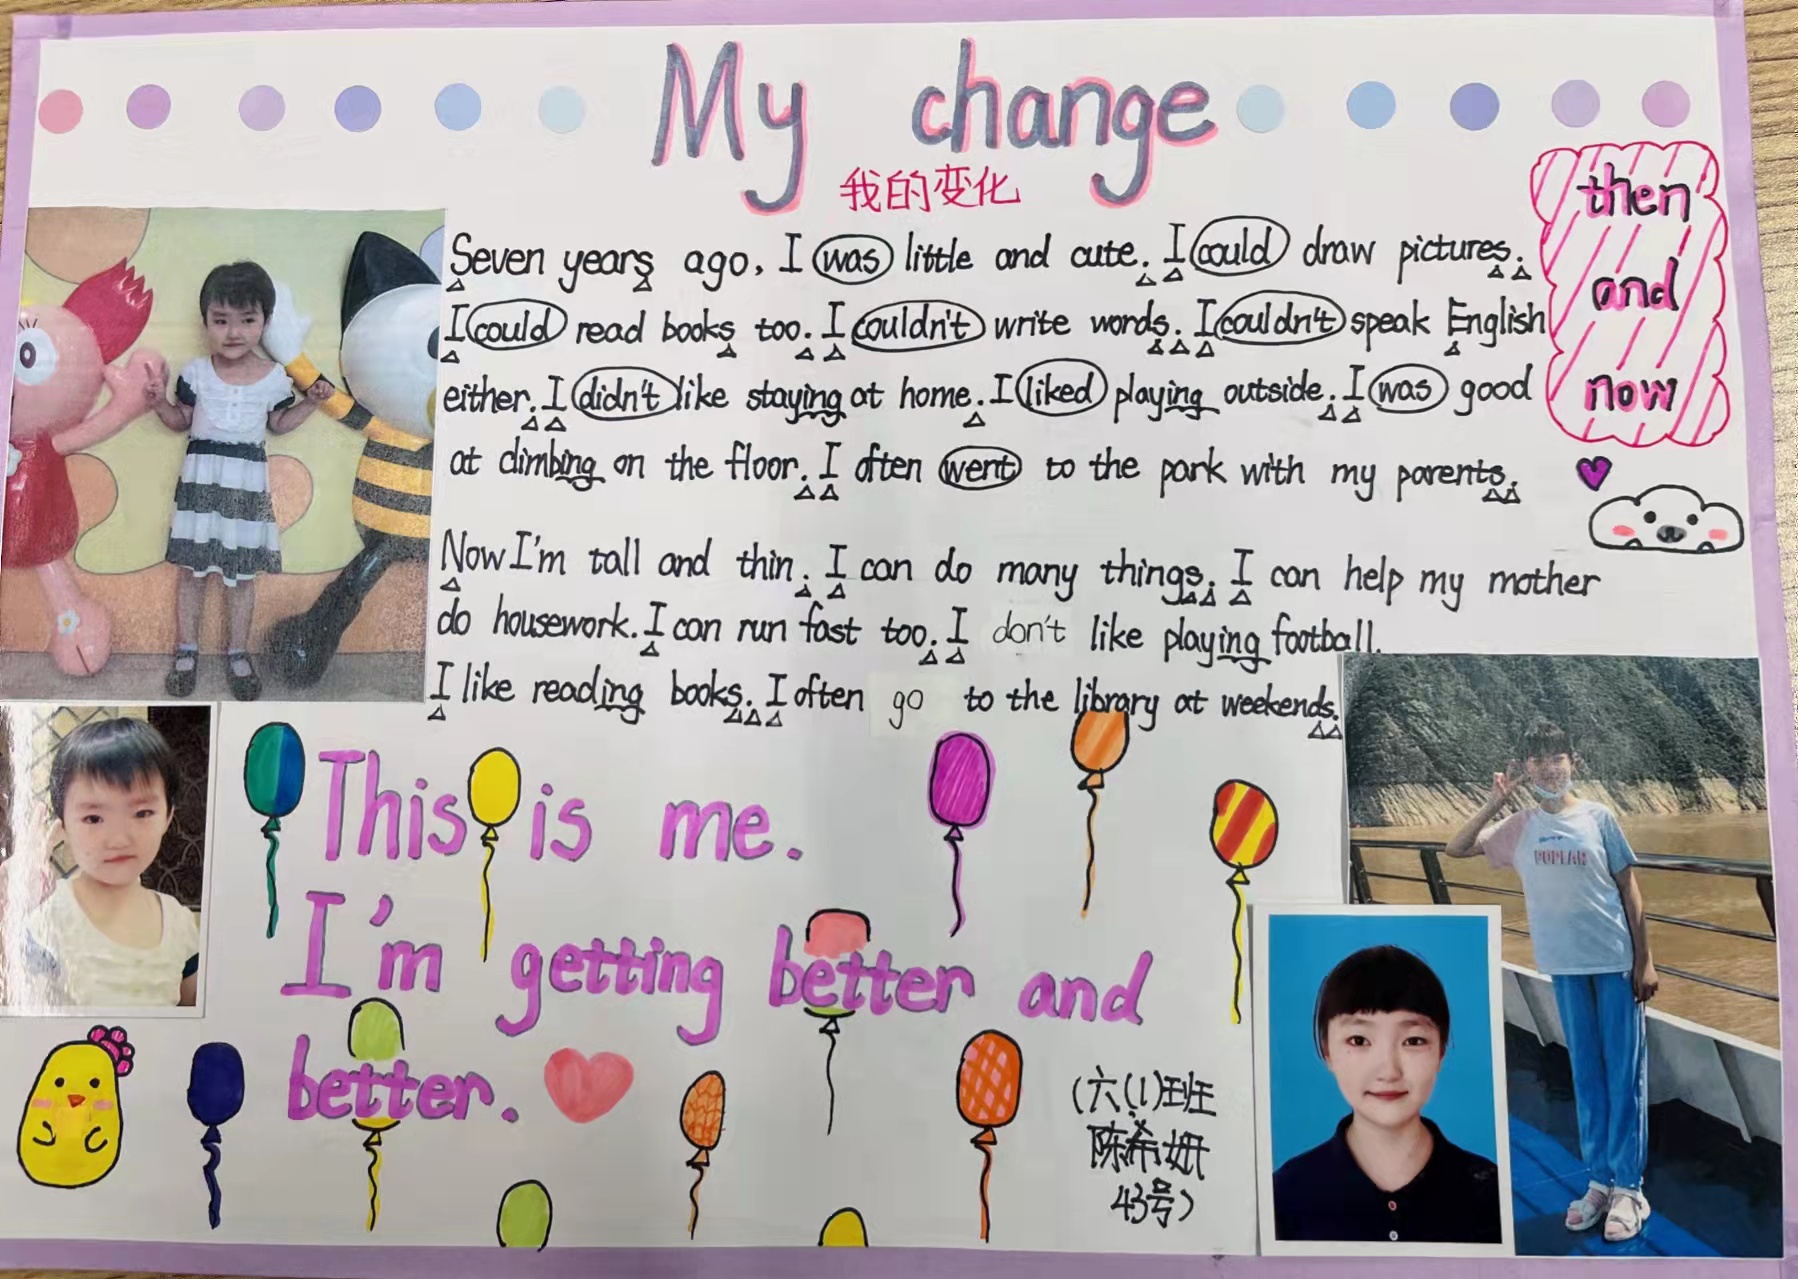 My change
我的变化
then
and
now
Seven years ago, I was little and cute. I could draw pictures.
I could read books too. I couldn't write words. I couldn't speak English
either. I didn't like staying at home. I liked playing outside. I was good
at climbing on the floor. I often went to the park with my parents.
Now I'm tall and thin. I can do many things. I can help my mother
do housework. I can run fast too. I don't like playing football.
I like reading books. I often go to the library at weekends.
This is me.
I'm getting better and
better.
(六(1)班
陈希姗
43号)